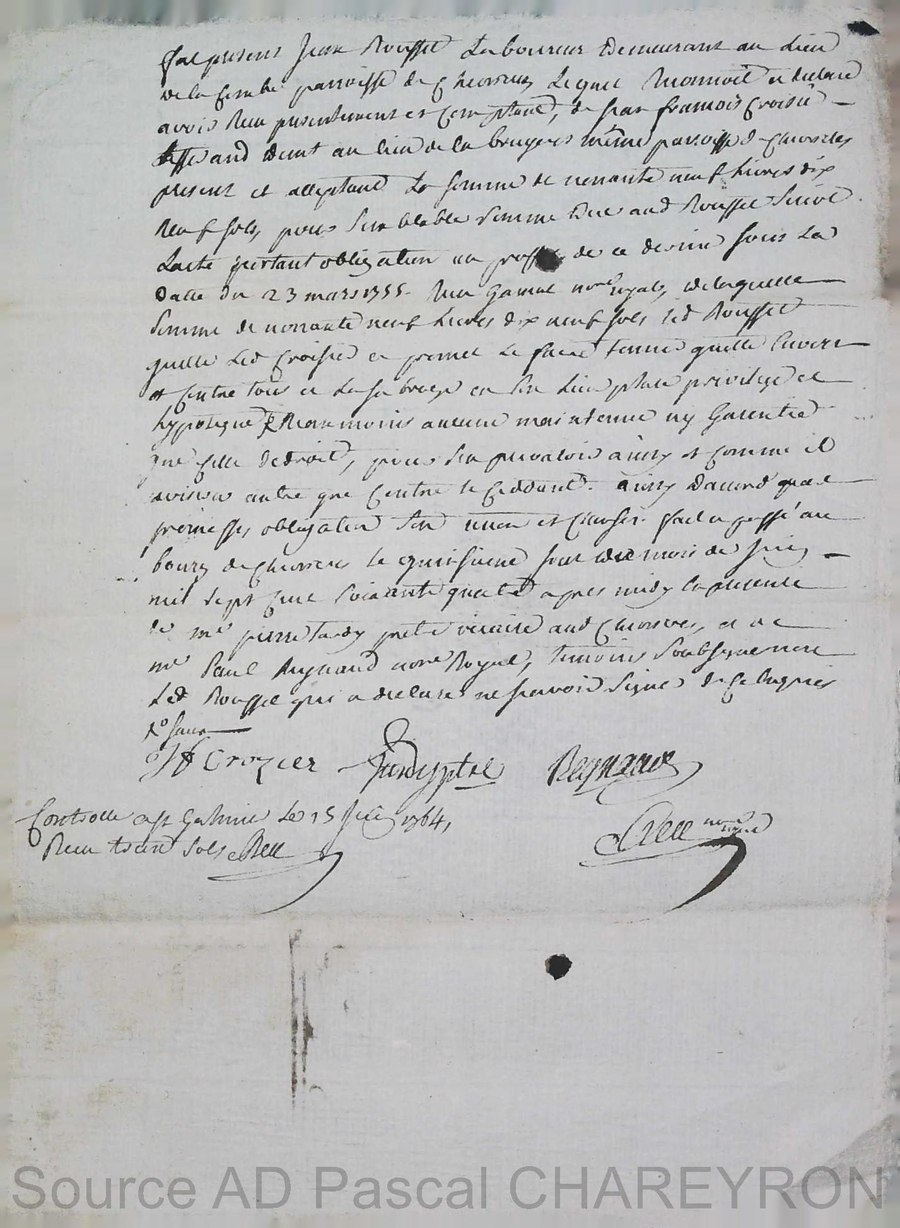 fut present Jean Rousset Laboureur demeurant au lieu
de la Combe parroisse de Chevrieres Lequel reconnoit et declare
avoir reçu presentement et comptant, de Jean françois Croisié
demt au lieu de la bruyere même parroisse de Chevrieres
present et acceptant La somme de nonante neuf livres dix
neuf sols, pour semblable somme due aud Rousset suivt
Lacte portant obligation au proffit de ce dernier sous La
datte du 23 mars 1755. reçu nore royal, de laquelle
somme de nonante neuf livres dix neuf sols led Rousset
quitte led Croisié et promet Le faire tenir quitte Envers
et Contre tous et La en son Lieu place privilege et
hypoteque neanmoins aucune maintenue ny Garentie
que Celle de droit, pour s'en prevaloir ainsy et Comme il
avisera autre que Contre le Ceddant. ainsy daccord par
promesses, obligation fait et passé au
bourg de Chevrieres le quinsieme jour du mois de Juin
mil sept cent soixante quatre apres midy En presence
de me pierre tardy pretre vicaire aud Chevrieres, et de
me Paul Reynaud nore Royal, temoins soubsignes non
Led Rousset qui a declare ne sçavoir signer de Ce Enquis
Crozier Tardy ptre Reynaud
Controllé a st Galmier Le 15 Juin 1764,
Reçu treize sols
nore royal
Source AD Pascal CHAREYRON